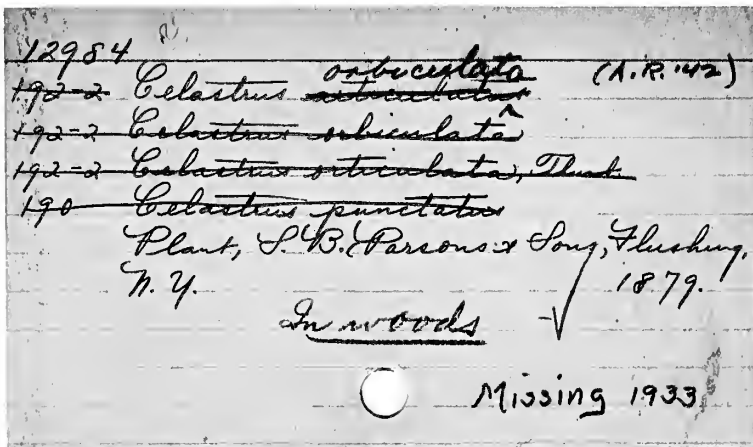 12984
192-2 Celastrus articulatus orbiculata (A.R. '42)
192-2 Celastrus orbiculata
192-2 Celastrus orticulata, Thunb
190 Celastrus punctatus
Plant, S. B. Parsons & Sons, Flushing,
N. Y. 1879.
In woods √
Missing 1933